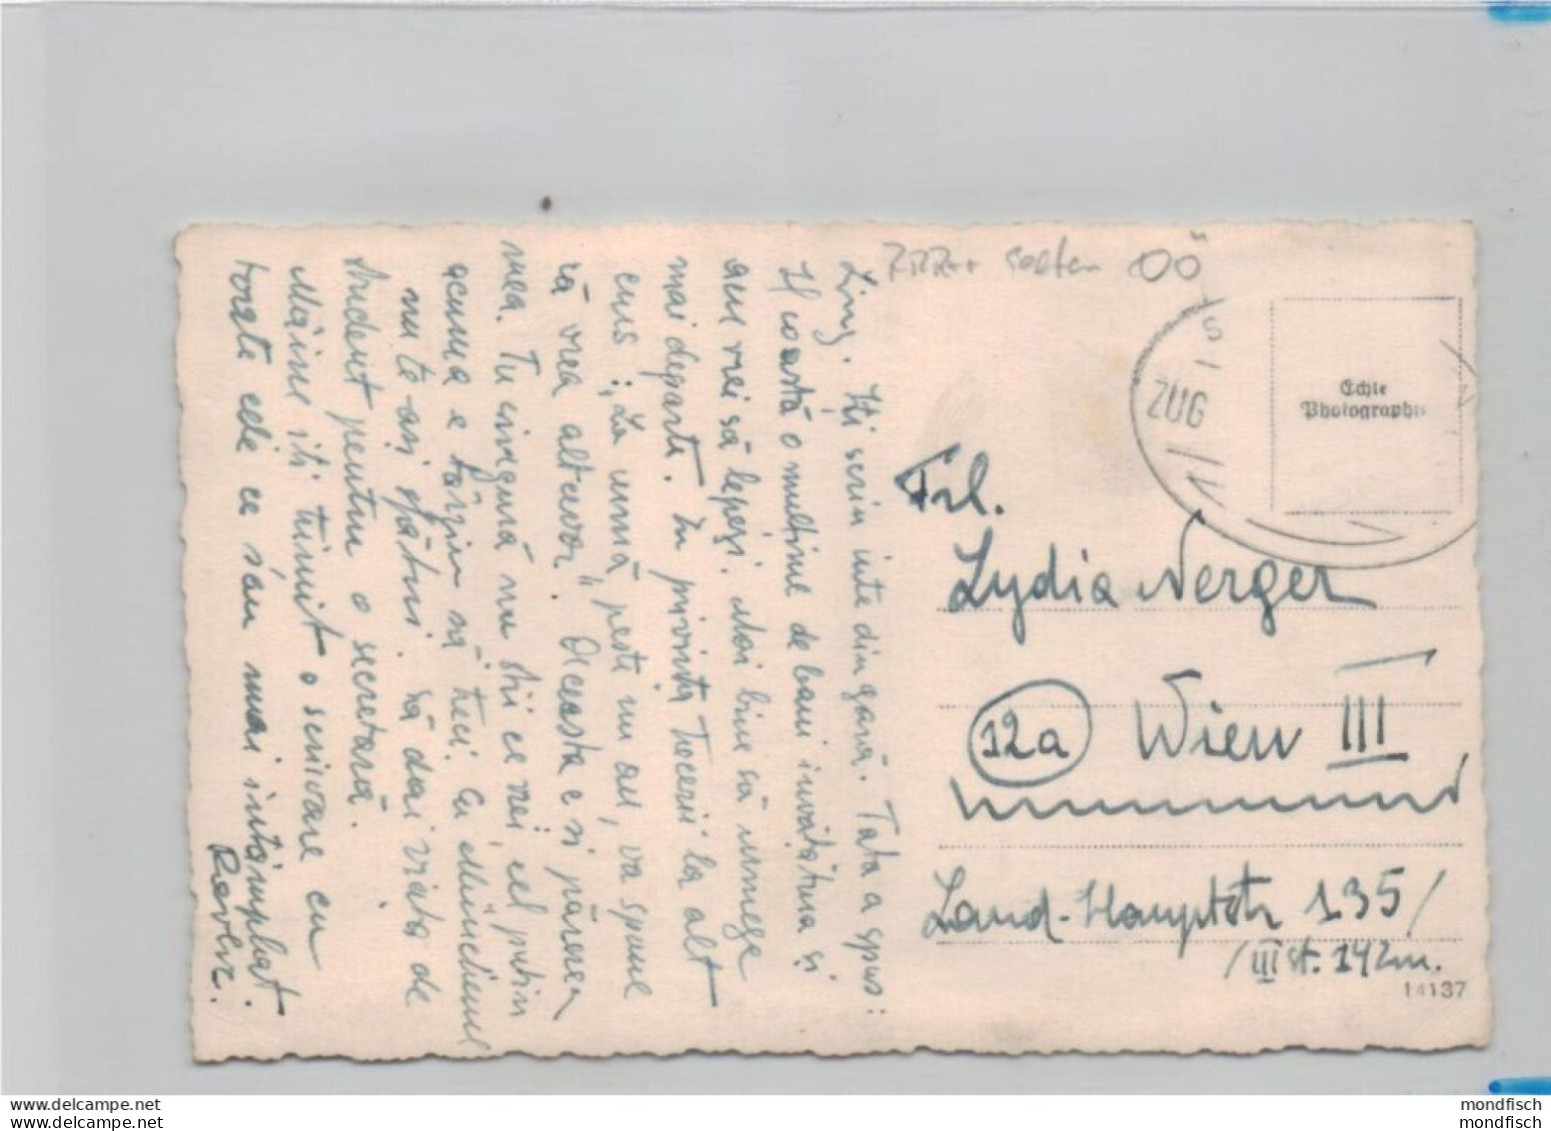 selten OÖ
Ling. Iți scriu iute din gară. Tata a spus:
Il costă o mulțime de bani învățătura și
am vrei să lepezi. Mai bine să urmeze
mai departe. În privința trecerii la alt
curs: „La urmă peste un an, va spune
că vrea altceva". Aceasta e și părerea
mea. Tu singură nu știi ce vrei, cel puțin
acuma e târziu să treci. Cu Münchenul
nu te-ași sfătui. Să dai viața de
student pentru o secretară.
Mâine iți trimit o scrisoare cu
toate cele ce s'au mai întâmplat.
S
ZUG
Echte
Photographie
Frl.
Lydia Nerger
12a Wien III
Land-Hauptstr 135/
/III st. 142m.
14137
mondfisch
mondfisch.delcampe.net
mondfisch
mondfisch